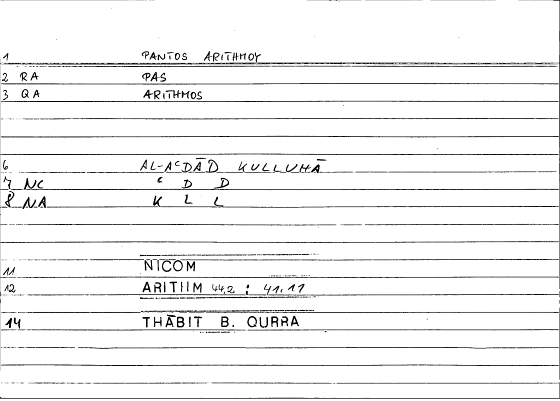 1 PANTOS ARITHMOY
2 RA PAS
3 QA ARITHMOS
6 AL-AʿDĀD KULLUHĀ
7 NC ʿ D D
8 NA K L L
11 NICOM
12 ARITIIM 44,2 : 41,11
14 THĀBIT B. QURRA